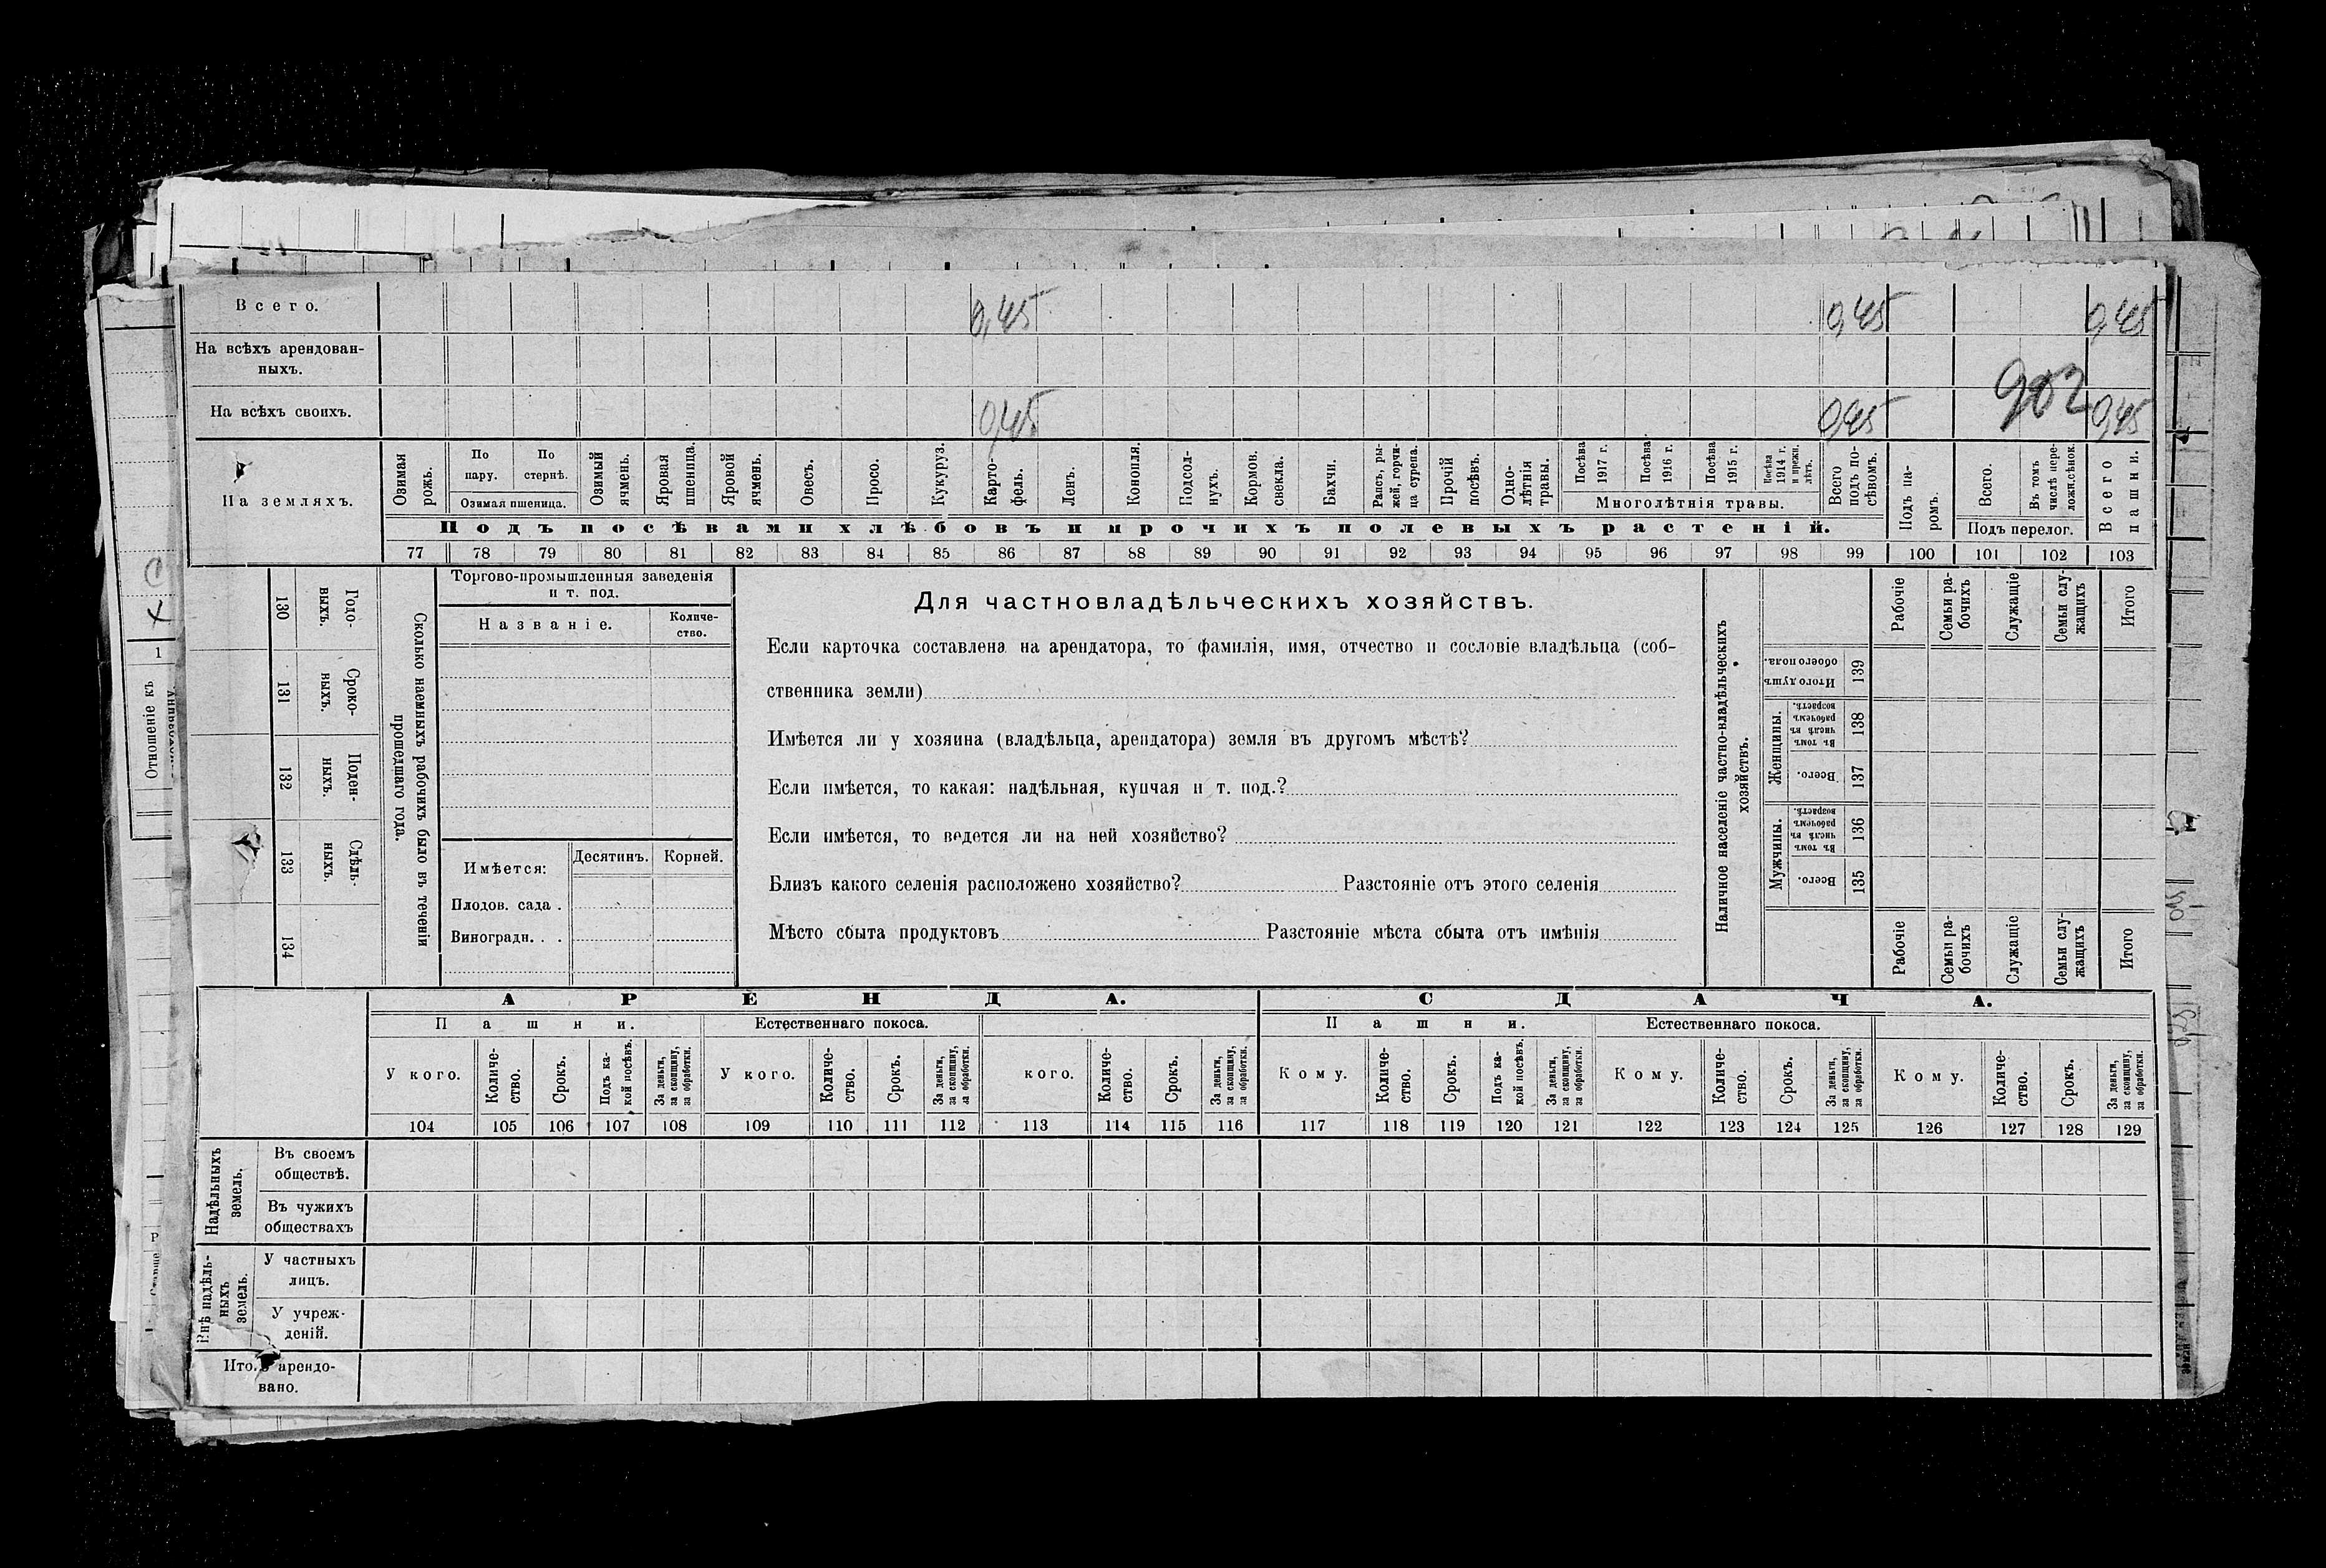 Всего. 0,45 0,45 0,45
На всѣхъ арендован-
ныхъ.
902
На всѣхъ своихъ. 0,45 0,45 0,45
На земляхъ.
Озимая рожь.
По пару.
По стернѣ.
Озимая пшеница.
Озимый ячмень.
Яровая пшеница.
Яровой ячмень.
Овесъ.
Просо.
Кукуруз.
Карто-
фель.
Ленъ.
Конопля.
Подсол-
нухъ.
Кормов. свекла.
Бахчи.
Рапсъ, ры-
жей, горчи-
ца сурепа.
Прочій посѣвъ.
Одно-
лѣтнія травы.
Посѣва 1917 г.
Посѣва 1916 г.
Посѣва 1915 г.
Посѣва 1914 г. и прежн. лѣтъ.
Многолѣтнія травы.
Всего подъ по-
сѣвомъ.
Подъ па-
ромъ.
Всего.
Въ томъ числѣ пере-
ложн. сѣнок.
Подъ перелог.
Всего пашни.
Подъ посѣвами хлѣбовъ и прочихъ полевыхъ растеній.
77 78 79 80 81 82 83 84 85 86 87 88 89 90 91 92 93 94 95 96 97 98 99 100 101 102 103
130 Годо-
выхъ.
131 Сроко-
ныхъ.
132 Поден-
ныхъ.
133 Сдѣль-
ныхъ.
134
Сколько наемныхъ рабочихъ было въ теченіи
прошедшаго года.
Торгово-промышленныя заведенія
и т. под.
Названіе. Количе-
ство.
Имѣется: Десятин. Корней.
Плодов. сада .
Виноградн. . .
Для частновладѣльческихъ хозяйствъ.
Если карточка составлена на арендатора, то фамилія, имя, отчество и сословіе владѣльца (соб-
ственника земли)
Имѣется ли у хозяина (владѣльца, арендатора) земля въ другомъ мѣстѣ?
Если имѣется, то какая: надѣльная, купчая и т. под.?
Если имѣется, то ведется ли на ней хозяйство?
Близъ какого селенія расположено хозяйство? Разстояніе отъ этого селенія
Мѣсто сбыта продуктовъ Разстояніе мѣста сбыта отъ имѣнія
Наличное населеніе частно-владѣльческихъ
хозяйствъ.
Рабочіе
Семьи ра-
бочихъ
Служащіе
Семьи слу-
жащихъ
Итого
Итого душъ обоего пола. 139
Женщины.
Въ томъ числѣ въ рабочемъ возрастѣ. 138
Всего. 137
Мужчины.
Въ томъ числѣ въ рабочемъ возрастѣ. 136
Всего. 135
Рабочіе
Семьи ра-
бочихъ
Служащіе
Семьи слу-
жащихъ
Итого
АРЕНДА. СДАЧА.
Пашни. Естественнаго покоса. Пашни. Естественнаго покоса.
У кого.
Количе-
ство.
Срокъ.
Подъ ка-
кой посѣвъ.
За деньги,
за скопщину,
за обработки.
У кого.
Количе-
ство.
Срокъ.
За деньги,
за скопщину,
за обработки.
кого.
Количе-
ство.
Срокъ.
За деньги,
за скопщину,
за обработки.
Кому.
Количе-
ство.
Срокъ.
Подъ ка-
кой посѣвъ.
За деньги,
за скопщину,
за обработки.
Кому.
Количе-
ство.
Срокъ.
За деньги,
за скопщину,
за обработки.
Кому.
Количе-
ство.
Срокъ.
За деньги,
за скопщину,
за обработки.
104 105 106 107 108 109 110 111 112 113 114 115 116 117 118 119 120 121 122 123 124 125 126 127 128 129
Надѣльныхъ
земель.
Въ своемъ
обществѣ.
Въ чужихъ
обществахъ
Внѣ надѣль-
ныхъ
земель.
У частныхъ
лицъ.
У учреж-
деній.
арендо-
вано.
Отношеніе къ
1